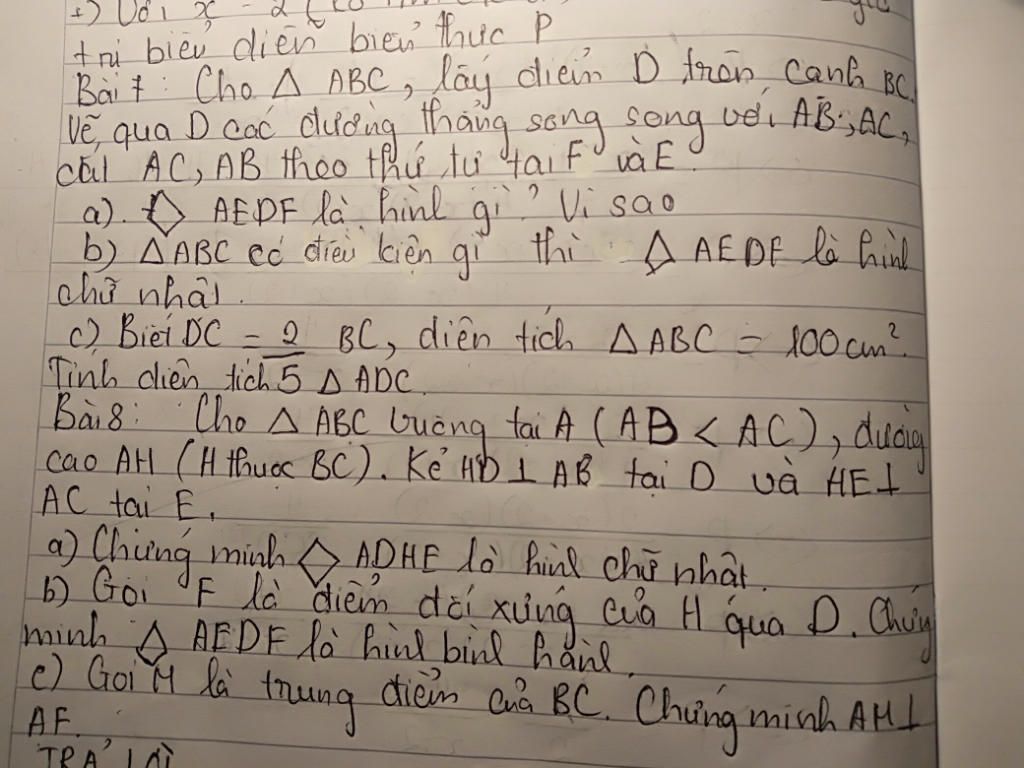 +) Với x = 2
trị biểu diễn biểu thức P
Bài 7: Cho △ ABC, lấy điểm D trên cạnh BC.
Vẽ qua D các đường thẳng song song với AB, AC,
cắt AC, AB theo thứ tự tại F và E.
a). ◇ AEDF là hình gì? Vì sao
b) △ ABC có điều kiện gì thì ◇ AEDF là hình
chữ nhật.
c) Biết DC = 2/5 BC, diện tích △ ABC = 100 cm².
Tính diện tích △ ADC.
Bài 8: Cho △ ABC vuông tại A (AB < AC), đường
cao AH (H thuộc BC). Kẻ HD ⊥ AB tại D và HE ⊥
AC tại E.
a) Chứng minh ◇ ADHE là hình chữ nhật.
b) Gọi F là điểm đối xứng của H qua D. Chứng
minh ◇ AEDF là hình bình hành.
c) Gọi M là trung điểm của BC. Chứng minh AM ⊥
AF.
TRẢ LỜI